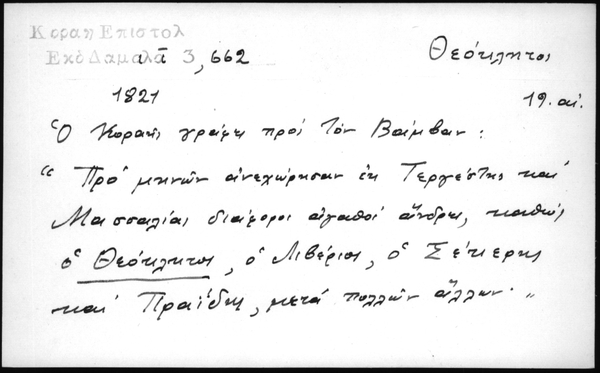 Κοραη Επιστολ
Εκδ Δαμαλά 3, 662
Θεόκλητος
1821
19. αἰ.
Ὁ Κοραῆς γράφει πρὸς τὸν Βάμβαν :
“ Πρὸ μηνῶν ἀνεχώρησαν ἐκ Τεργέστης καὶ
Μασσαλίας διάφοροι ἀγαθοὶ ἄνδρες, καθὼς
ὁ Θεόκλητος, ὁ Λιβέριος, ὁ Σέκερης
καὶ Πραΐδης, μετὰ πολλῶν ἄλλων. „